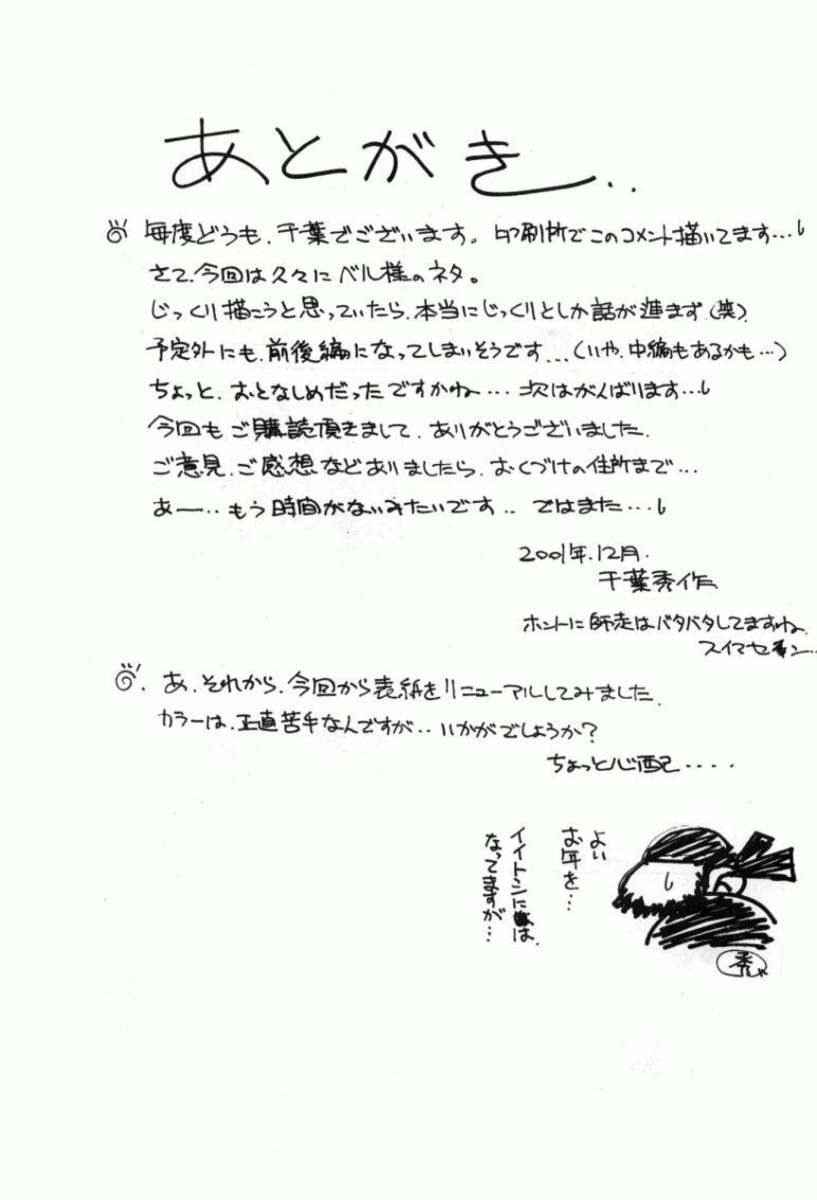 あとがき..
毎度どうも、千葉でございます。印刷所でこのコメント描いてます…
さて、今回は久々にベル様のネタ。
じっくり描こうと思っていたら、本当にじっくりとしか話が進まず、(笑)
予定外にも、前後編になってしまいそうです…(いや、中編もあるかも…)
ちょっと、おとなしめだったですかね…次はがんばります…
今回もご購読頂きまして、ありがとうございました。
ご意見、ご感想などありましたら、おくづけの住所まで…
あー‥もう時間がないみたいです‥ではまた…
2001年.12月.
千葉秀作
ホントに師走はバタバタしてますね
スイマセン…
あ、それから、今回から表紙をリニューアルしてみました。
カラーは、正直苦手なんですが‥いかがでしょうか?
ちょっと心配‥‥
よい
お年を…
なってますが…
秀